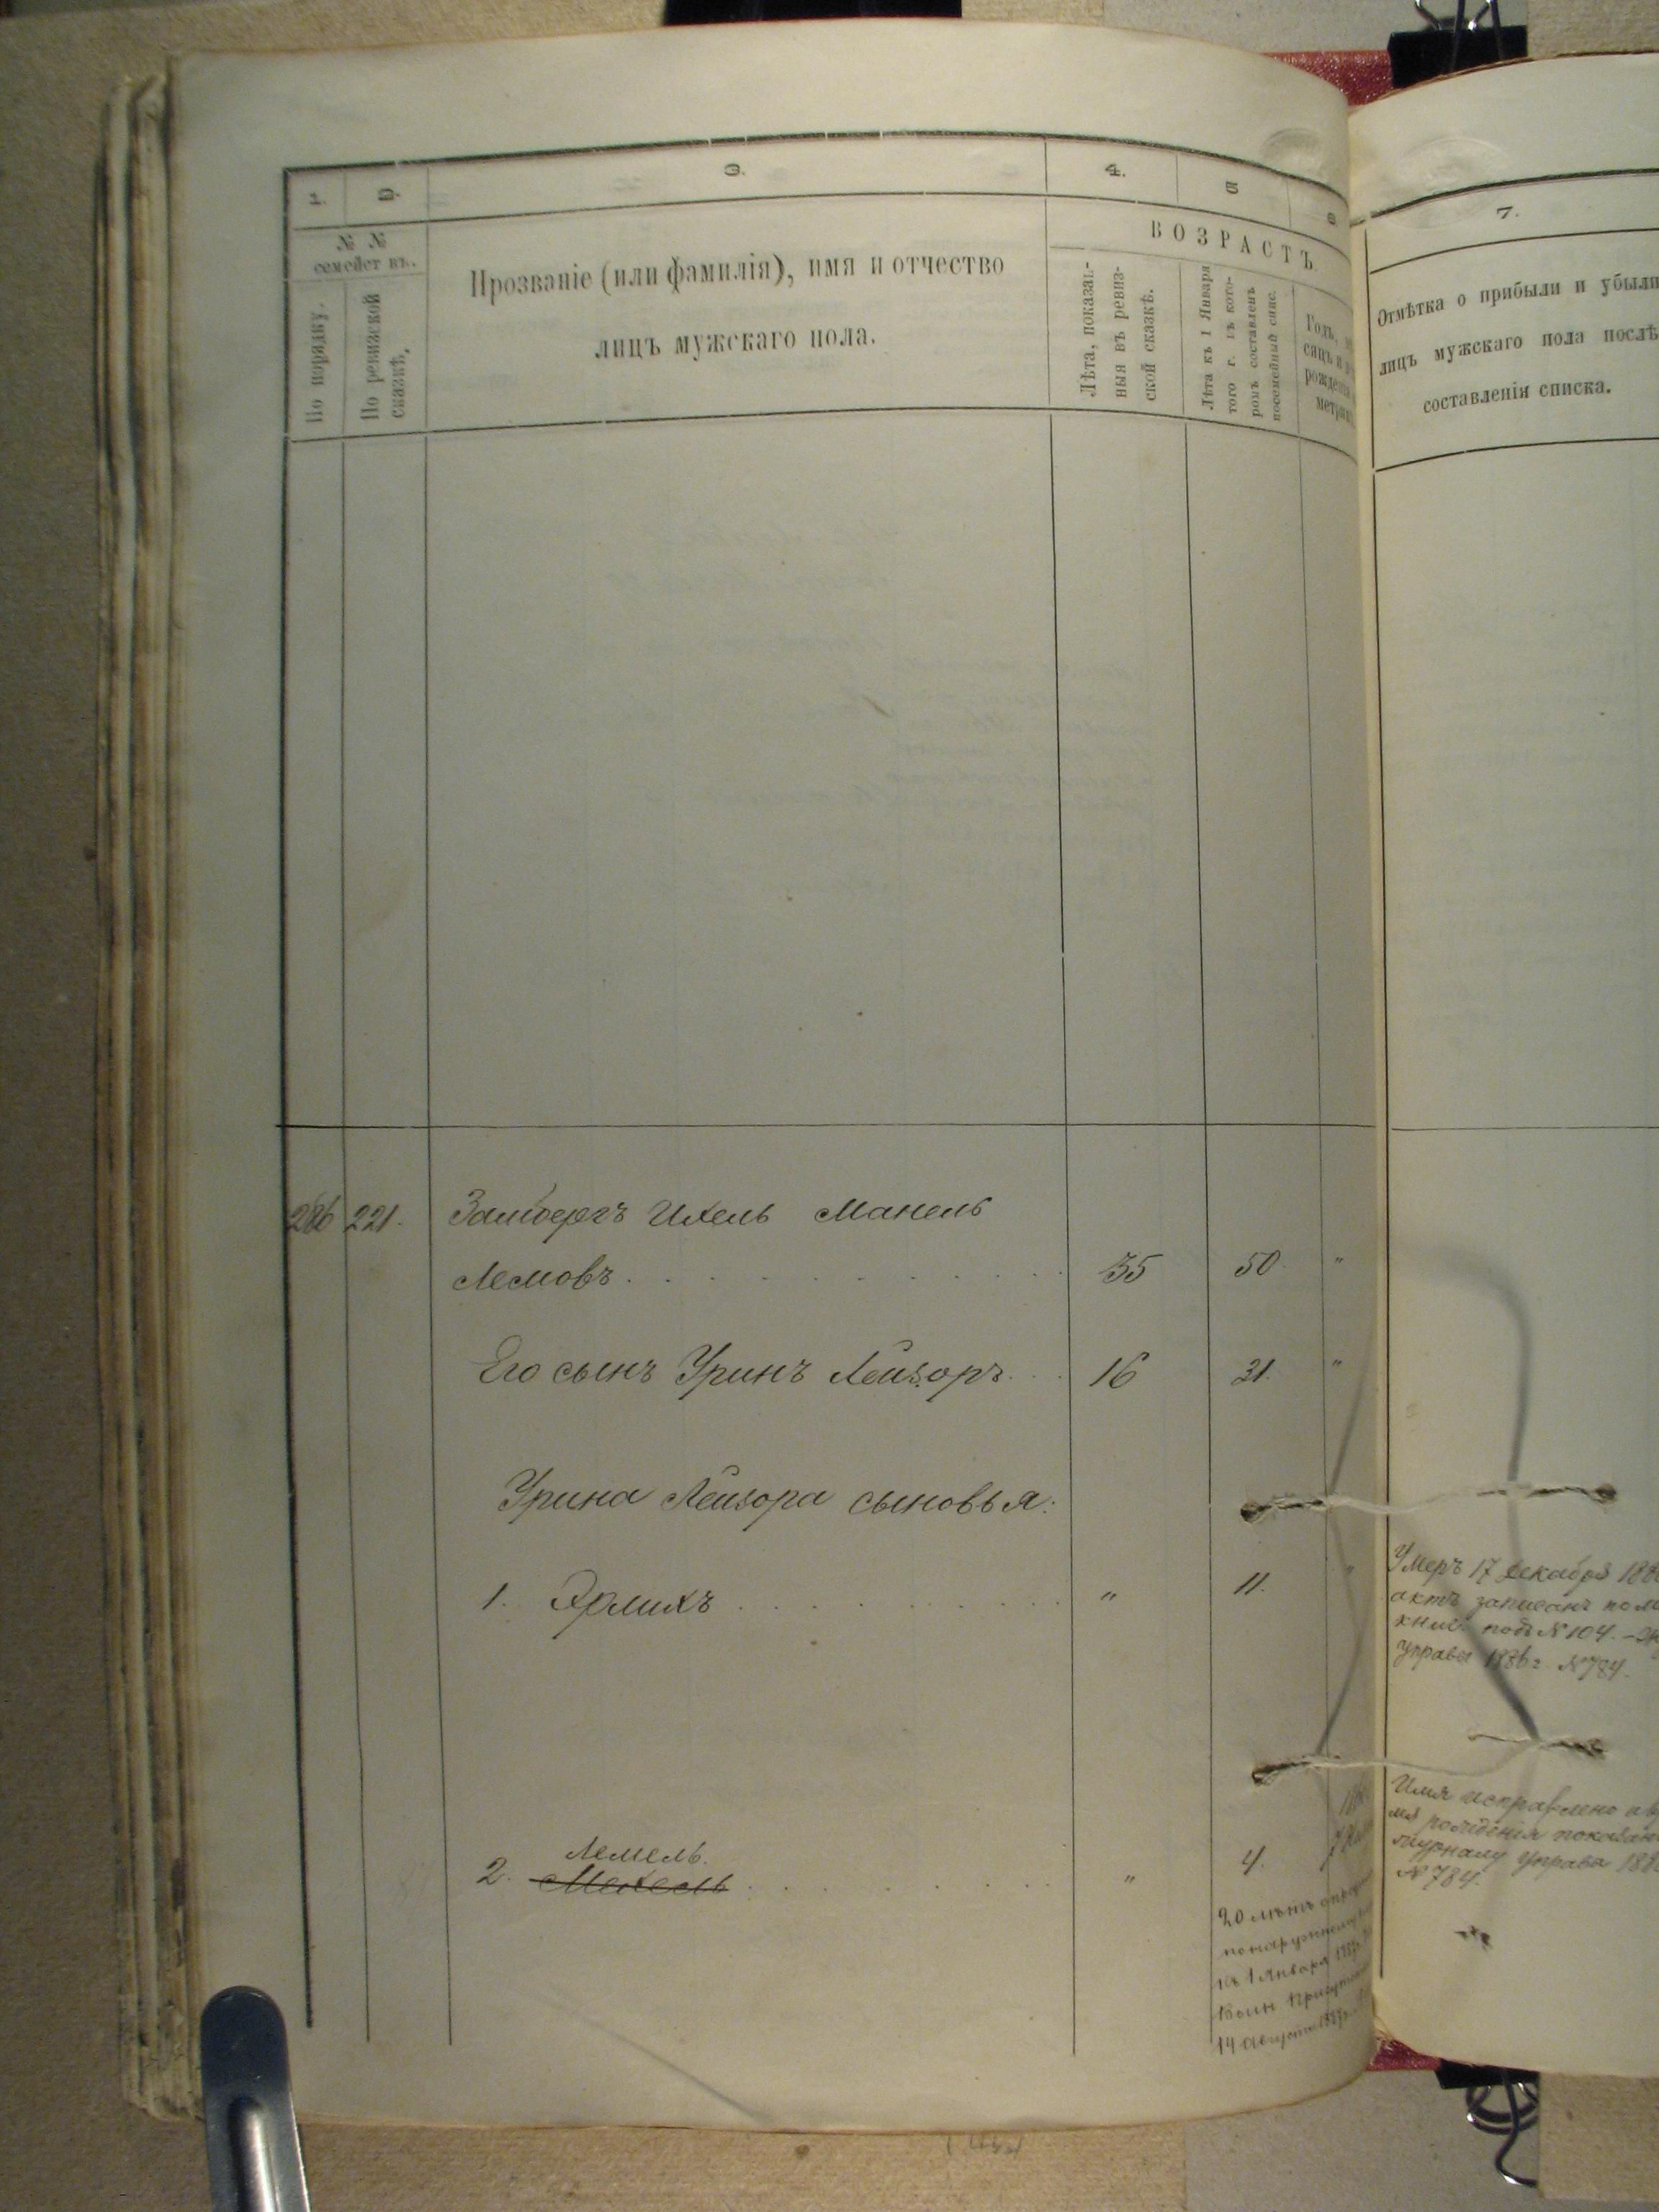 1. 2. 3. 4. 5 6
№ №
семействъ.
По порядку.
По ревизской
сказкѣ.
Прозваніе (или фамилія), имя и отчество
лицъ мужскаго пола.
ВОЗРАСТЪ.
Лѣта, показан-
ныя въ ревиз-
ской сказкѣ.
Лѣта къ 1 Января
того г. въ кото-
ромъ составленъ
посемейный спис.
Годъ,
рожден
метри
7.
Отмѣтка о прибыли и убыли
лицъ мужскаго пола послѣ
составленія списка.
286 221. Замбергъ Ихель Манель
Лемовъ 35 50 "
Его сынъ Уринъ Лейзоръ 16 31. "
Урина Лейзора сыновья:
1. Эрлихъ " 11. "
Умеръ 17 декабря 188
актъ записанъ по
книг подъ № 104.
управы 1886 г. № 784.
Лемель.
2. " 4.
Имя исправлено
рожденія показан
журналу Управы 188
№ 784.
20 лѣтъ
по наружному
къ 1 Января
Воин Присут
14 Августа